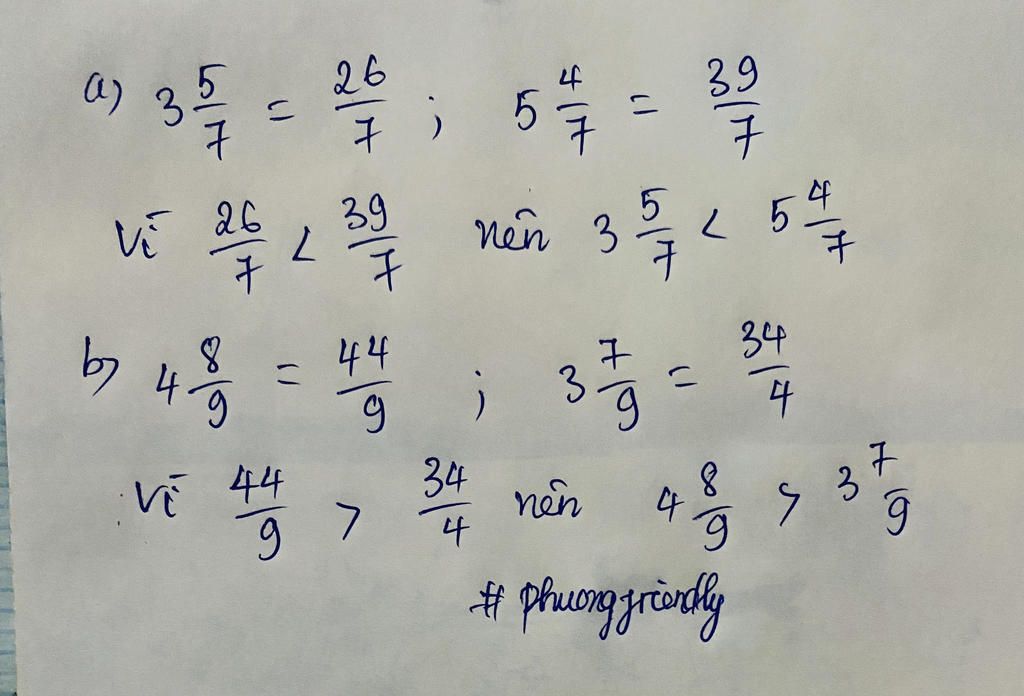 a) 3 5/7 = 26/7 ; 5 4/7 = 39/7
Vì 26/7 < 39/7 nên 3 5/7 < 5 4/7
b) 4 8/9 = 44/9 ; 3 7/9 = 34/4
Vì 44/9 > 34/4 nên 4 8/9 > 3 7/9
# phuongfriendly